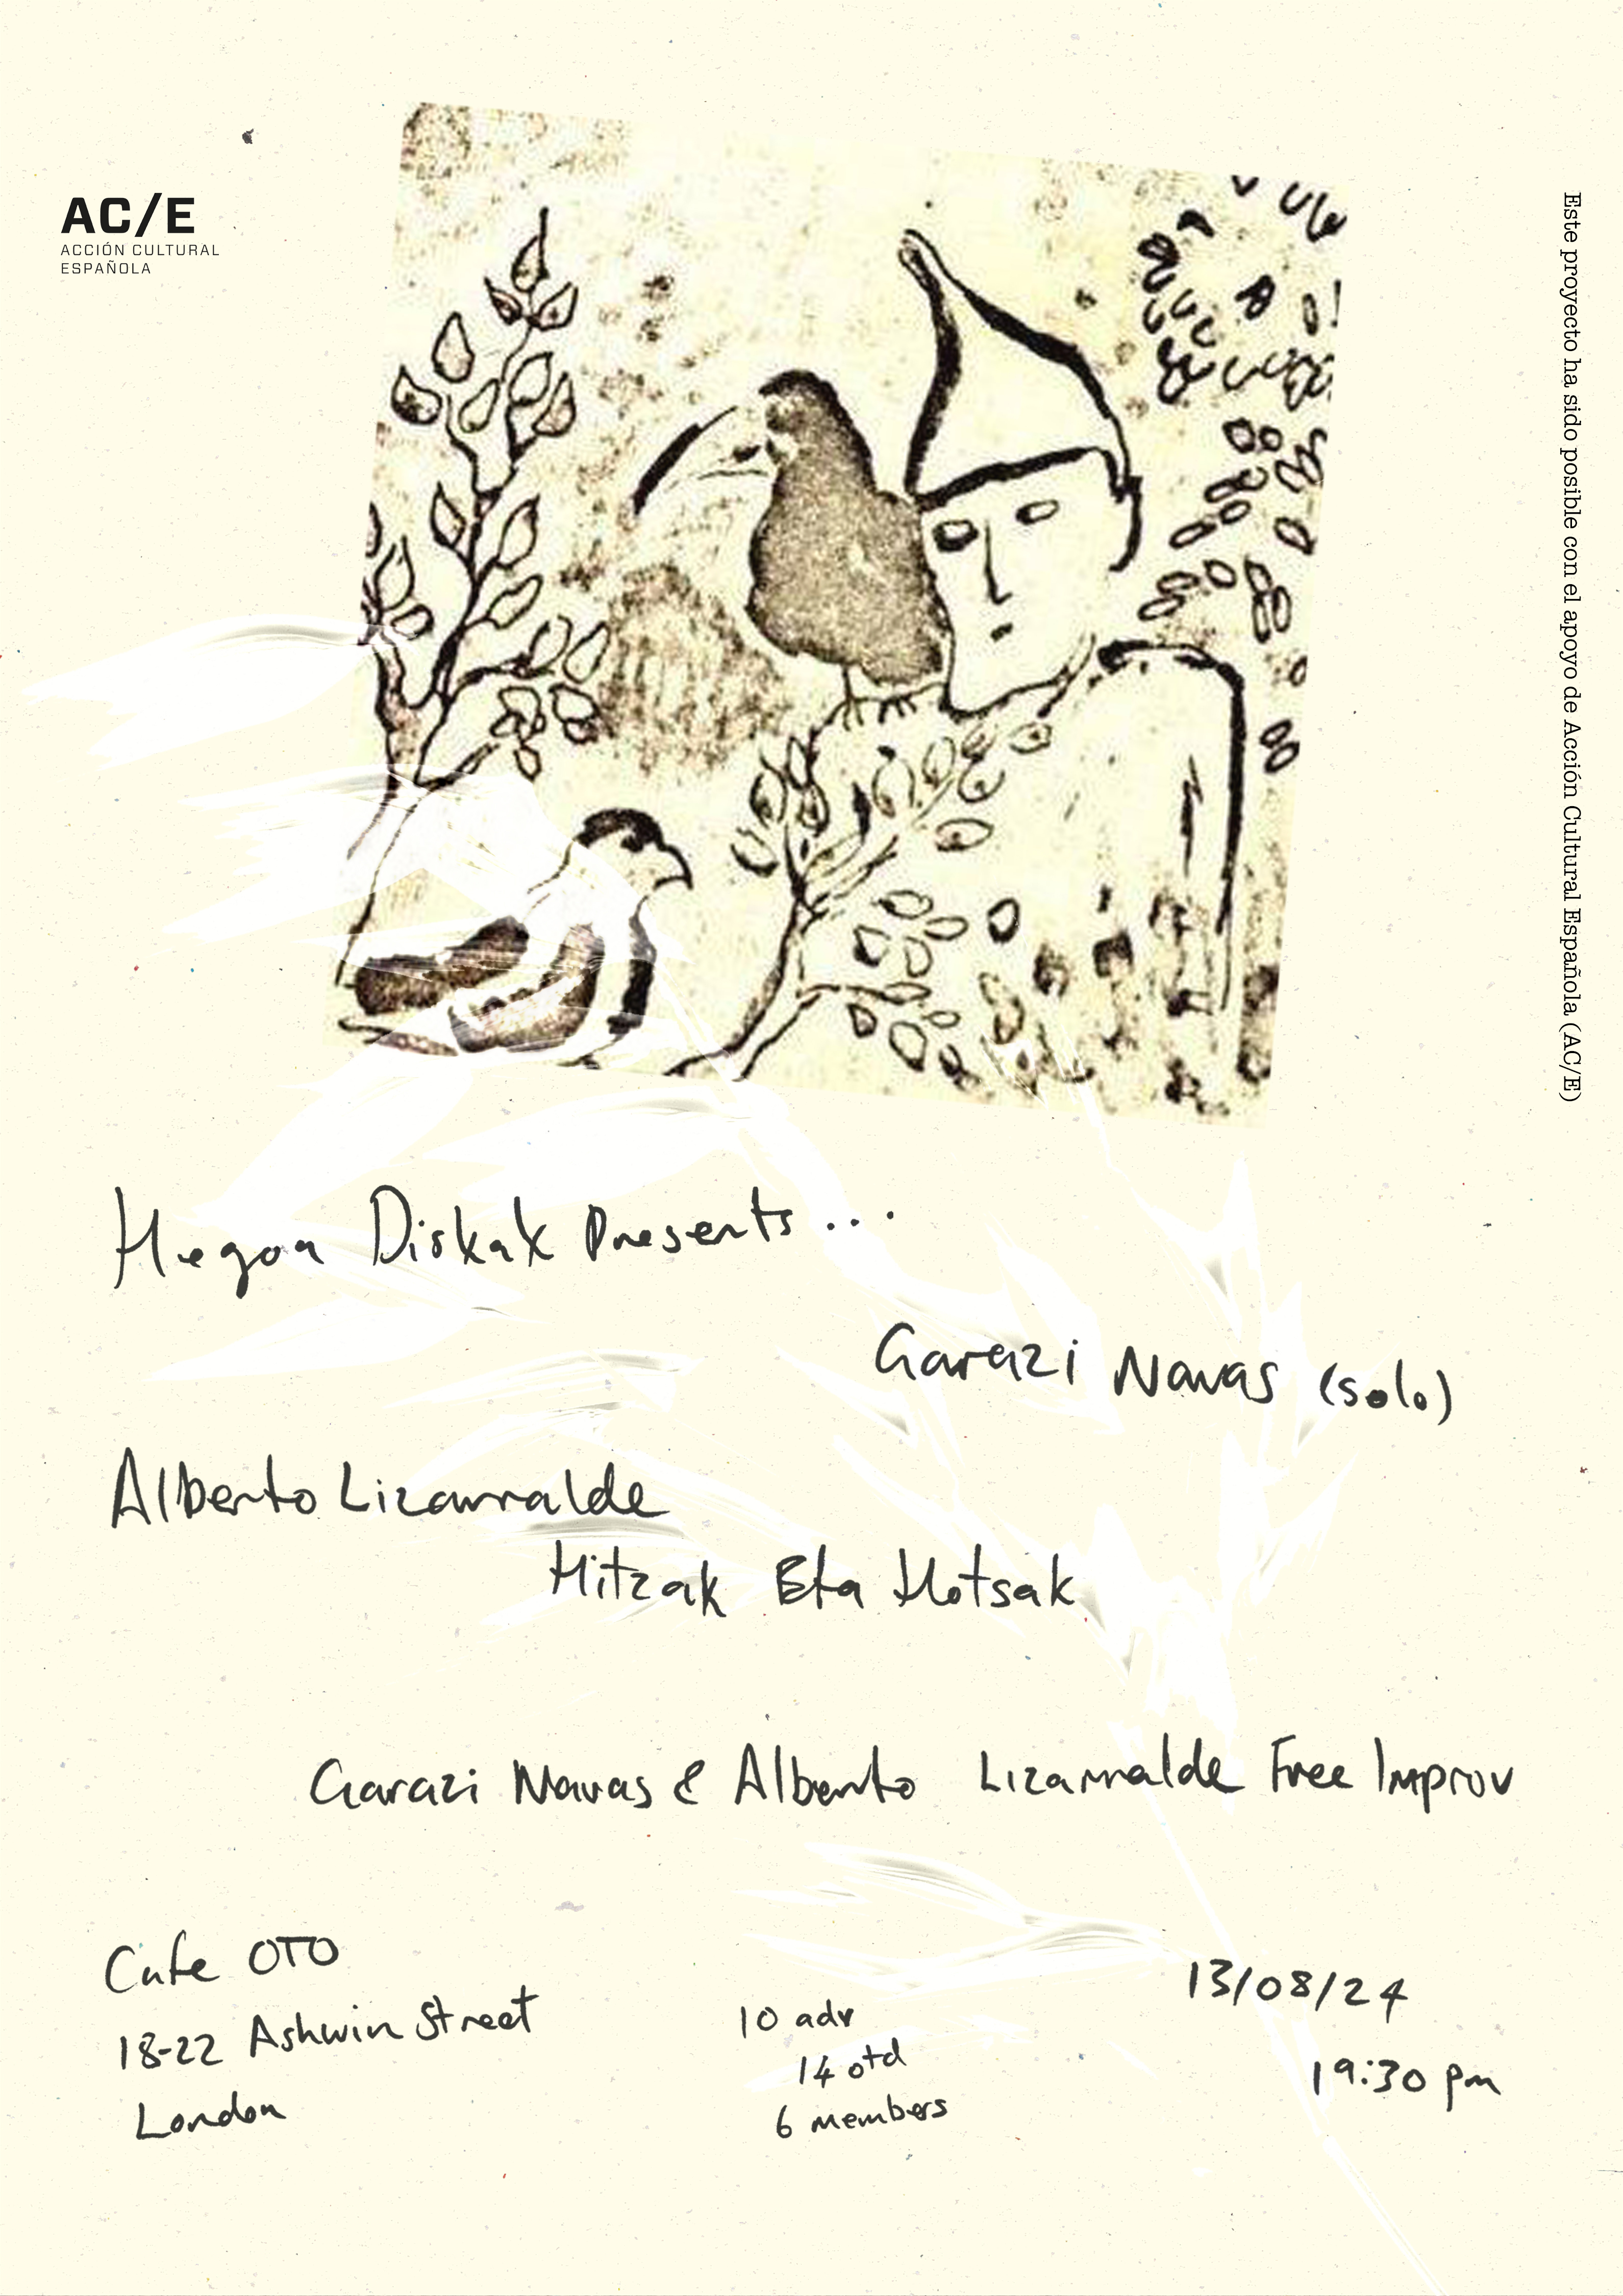 AC/E
ACCIÓN CULTURAL
ESPAÑOLA
Este proyecto ha sido posible con el apoyo de Acción Cultural Española (AC/E)
Hegoa Diskak Presents...
Garazi Navas (solo)
Alberto Lizarralde
Hitzak Eta Hotsak
Garazi Navas & Alberto Lizarralde Free Improv
Cafe OTO
18-22 Ashwin Street
London
10 adv
14 otd
6 members
13/08/24
19:30 pm